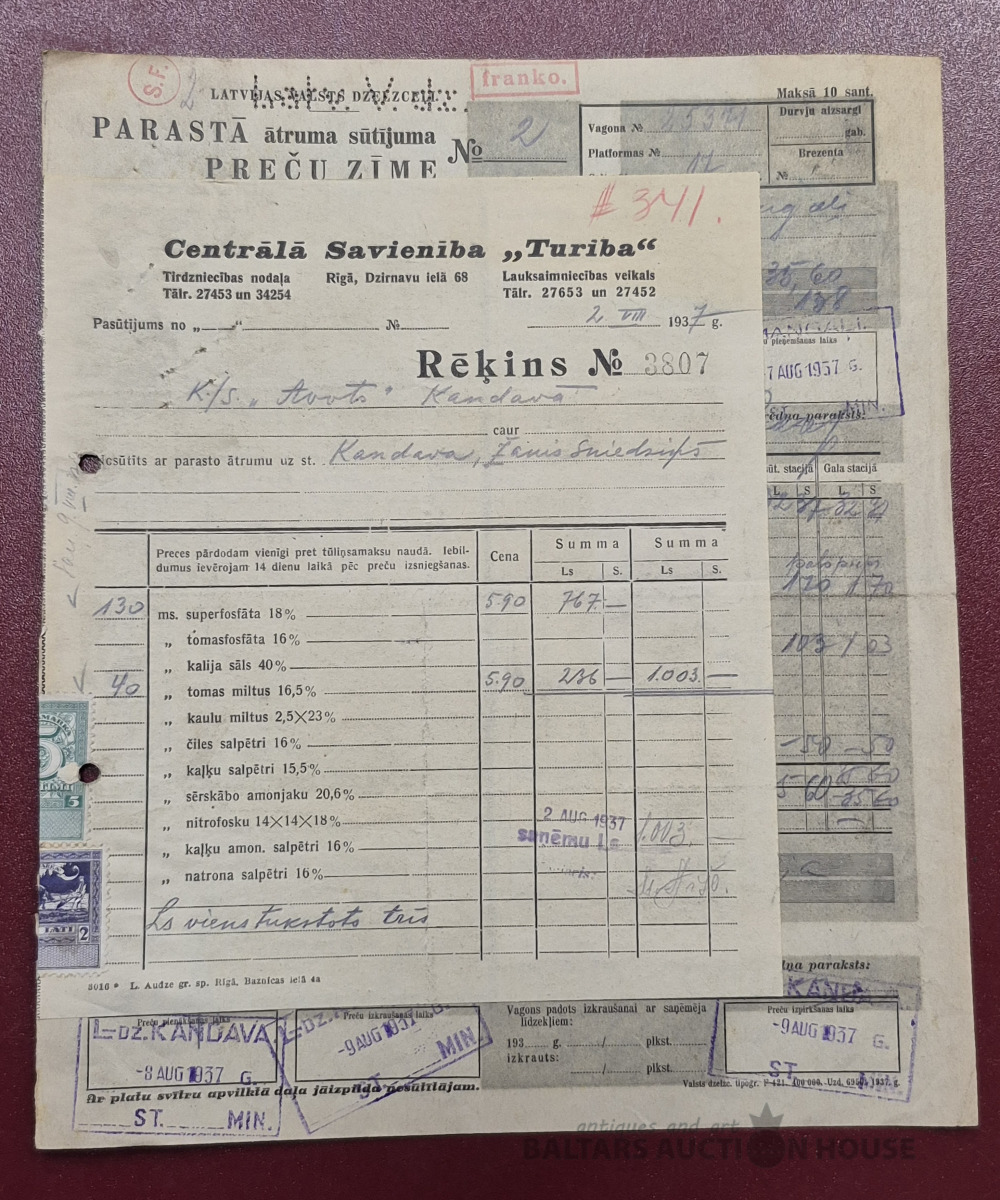 S.F.
2
LATVIJAS VALSTS DZELZCEĻI
franko.
Maksā 10 sant.
PARASTĀ ātruma sūtījuma
PREČU ZĪME
№ 2
Vagona №
Platformas № 17
Durvju aizsargi
gab.
Brezenta
№
# 341.
Centrālā Savienība „Turība“
Tirdzniecības nodaļa
Tālr. 27453 un 34254
Rīgā, Dzirnavu ielā 68
Lauksaimniecības veikals
Tālr. 27653 un 27452
Pasūtījums no „ “ № 2 VIII 1937 g.
Rēķins № 3807
K/S. „Avots“ Kandavā
caur
Nosūtīts ar parasto ātrumu uz st. Kandava, Žanis Sniedziņš
Preces pārdodam vienīgi pret tūliņsamaksu naudā. Iebil-
dumus ievērojam 14 dienu laikā pēc preču izsniegšanas.
Cena
Summa
Ls S.
Summa
Ls S.
130 ms. superfosfāta 18% 5.90 767 —
„ tomasfosfāta 16%
„ kalija sāls 40%
40 „ tomas miltus 16,5% 5.90 236 — 1.003. —
„ kaulu miltus 2,5×23%
„ čiles salpētri 16%
„ kaļķu salpētri 15,5%
„ sērskābo amonjaku 20,6%
„ nitrofosku 14×14×18%
„ kaļķu amon. salpētri 16%
„ natrona salpētri 16%
2 AUG 1937
saņēmu Ls 1.003.
Ls viens tūkstots trīs
3016 * L. Audze gr. sp. Rīgā, Baznīcas ielā 4a
5
LATI
2
35,60
138
pieņemšanas laiks
7 AUG 1937 G.
MIN.
paraksts:
sūt. stacijā
Gala stacijā
L S L S
170 170
103 1 03
-50 -50
5 60
paraksts:
Preču pienākšanas laiks
L-DZ. KANDAVA
-8 AUG 1937 G.
ST. MIN.
Preču izkraušanas laiks
L-DZ.
-9 AUG 1937
ST. MIN.
Vagons padots izkraušanai ar saņēmēja
līdzekļiem:
193 g. / plkst.
izkrauts:
/ plkst.
KANDA
Preču izpirkšanas laiks
-9 AUG 1937 G.
ST.
Ar platu svītru apvilktā daļa jāizpilda nosūtītājam.
Valsts dzelzc. tipogr.
antiques and art
BALTARS AUCTION HOUSE